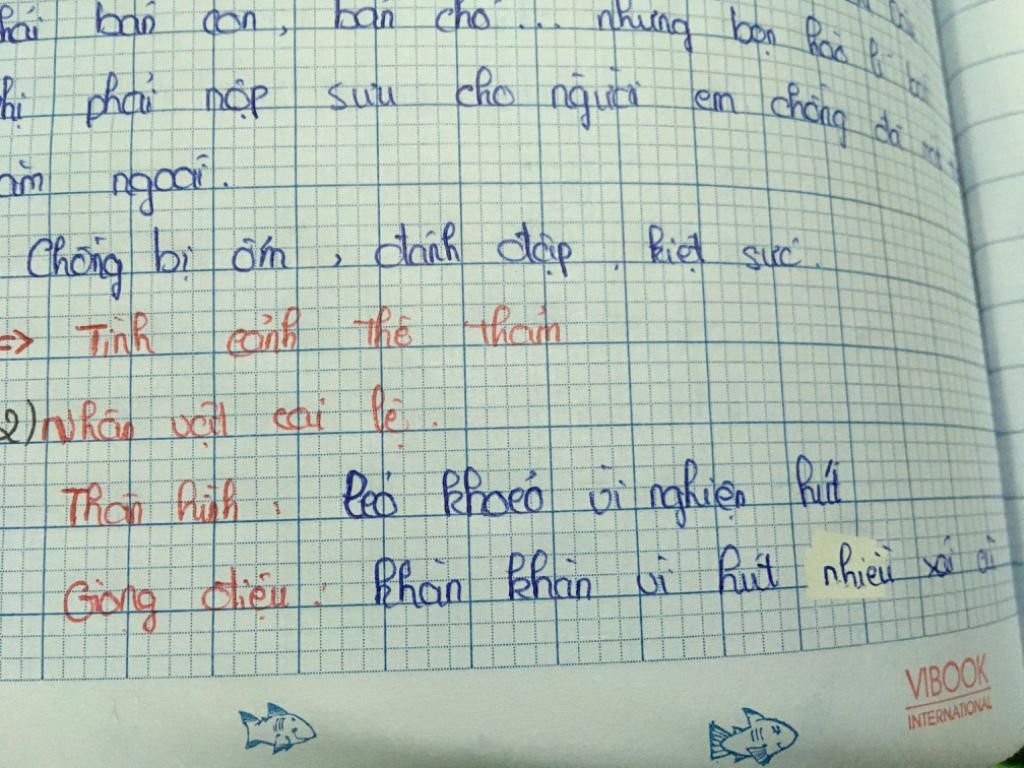 bán con, bán chó... nhưng bọn hào lí
phải nộp sưu cho người em chồng đã
ngoái.
Chồng bị ốm, đánh đập, kiệt sức.
=> Tình cảnh thê thảm
2) Nhân vật cai lệ.
Thân hình: lẻo khoẻo vì nghiện hút
Giọng điệu: khàn khàn vì hút nhiều xái
VIBOOK
INTERNATIONAL